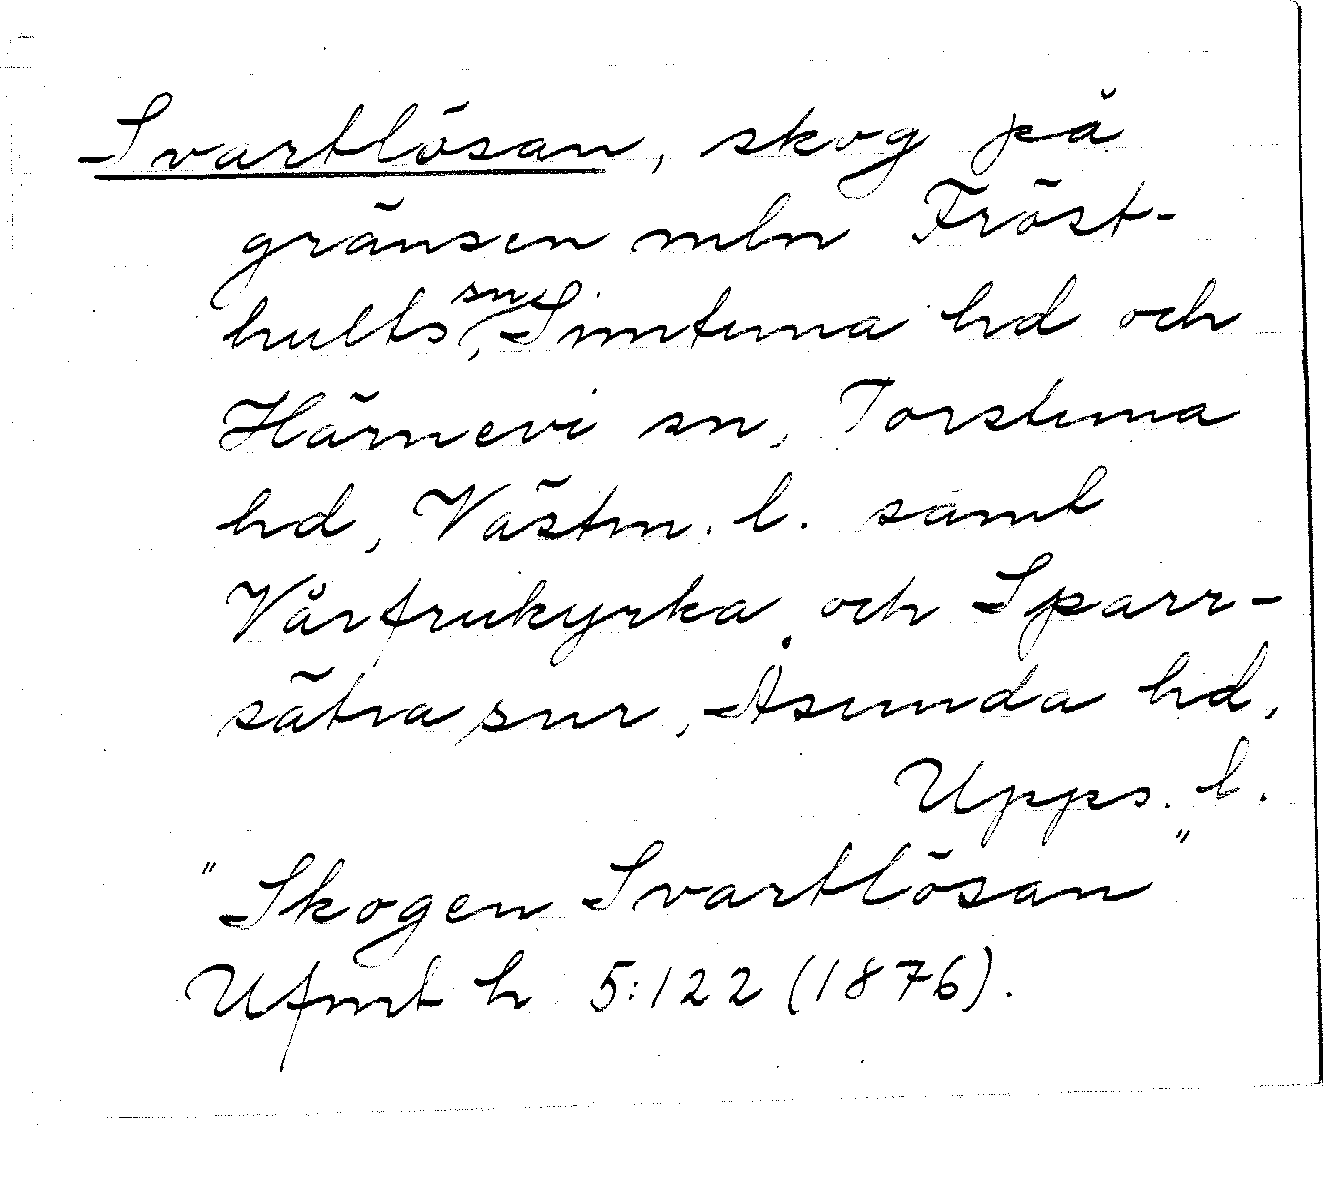 Svartlösan, skog på
gränsen mln Fröst-
hults sn, Simtuna hd och
Härnevi sn, Torstuna
hd, Västm. l. samt
Vårfrukyrka och Sparr-
sätra snr, Åsunda hd,
Upps. l.
"Skogen Svartlösan"
Ufmt h 5:122 (1876).